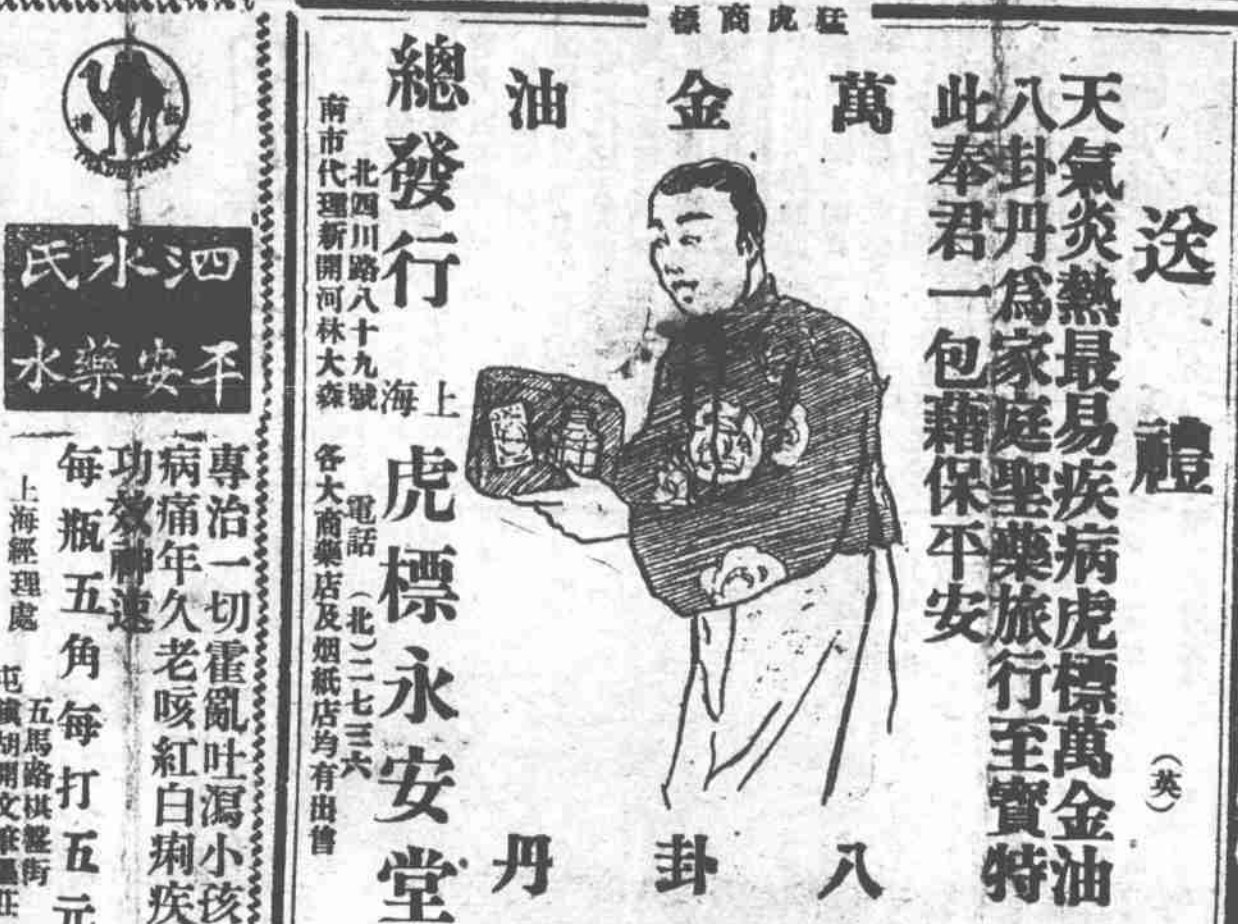 猛虎商標
送禮
(英)
天氣炎熱最易疾病虎標萬金油
八卦丹爲家庭聖藥旅行至寶特
此奉君一包藉保平安
萬金油
八卦丹
總發行 上海 虎標永安堂
北四川路八十九號 電話(北)二七三六
南市代理新開河林大森 各大商藥店及烟紙店均有出售
TRADE MARK
泗水氏
平安藥水
專治一切霍亂吐瀉小孩
病痛年久老咳紅白痢疾
功效神速
每瓶五角每打五元
上海經理處
五馬路棋盤街
胡開文筆墨莊